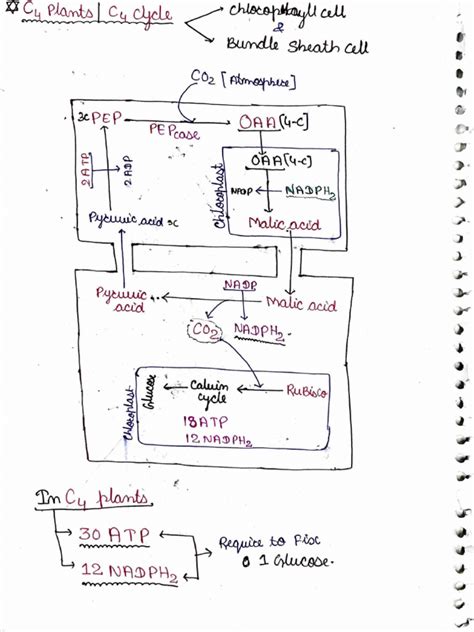 C4 Plants | C4 Cycle
Chlorophyll cell
&
Bundle Sheath Cell
CO2 [Atmosphere]
3C PEP
PEPcase
OAA [4-C]
OAA [4-C]
2ATP
2ADP
Chloroplast
NADP
NADPH2
Pyruvic acid 3C
Malic acid
NADP
Pyruvic acid
Malic acid
CO2
NADPH2
Chloroplast
Glucose
Calvin cycle
RuBisco
18ATP
12NADPH2
In C4 plants
30 ATP
12 NADPH2
Require to Fix
1 Glucose.